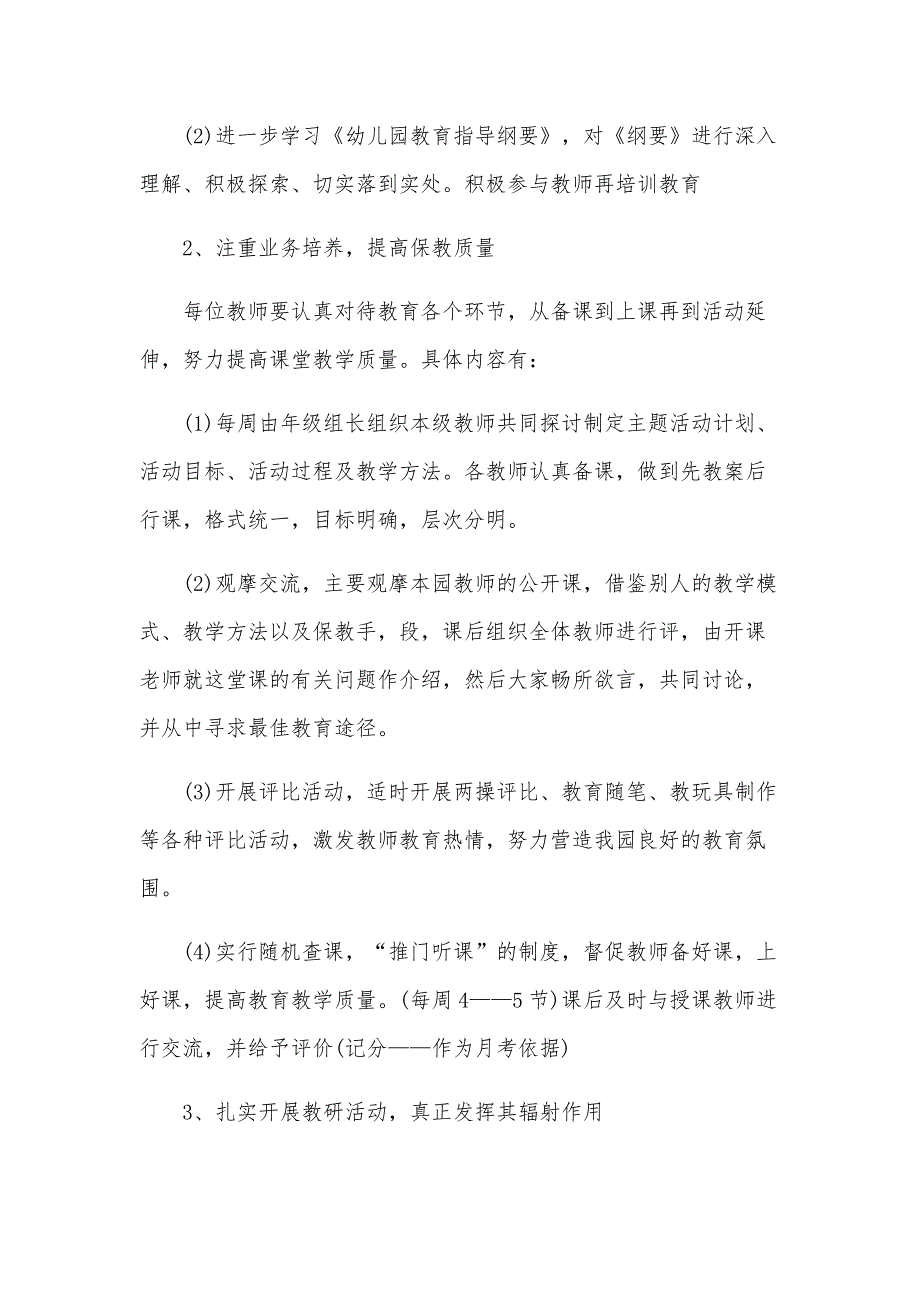 (2)进一步学习《幼儿园教育指导纲要》，对《纲要》进行深入
理解、积极探索、切实落到实处。积极参与教师再培训教育
2、注重业务培养，提高保教质量
每位教师要认真对待教育各个环节，从备课到上课再到活动延
伸，努力提高课堂教学质量。具体内容有：
(1)每周由年级组长组织本级教师共同探讨制定主题活动计划、
活动目标、活动过程及教学方法。各教师认真备课，做到先教案后
行课，格式统一，目标明确，层次分明。
(2)观摩交流，主要观摩本园教师的公开课，借鉴别人的教学模
式、教学方法以及保教手，段，课后组织全体教师进行评，由开课
老师就这堂课的有关问题作介绍，然后大家畅所欲言，共同讨论，
并从中寻求最佳教育途径。
(3)开展评比活动，适时开展两操评比、教育随笔、教玩具制作
等各种评比活动，激发教师教育热情，努力营造我园良好的教育氛
围。
(4)实行随机查课，“推门听课”的制度，督促教师备好课，上
好课，提高教育教学质量。(每周 4——5 节)课后及时与授课教师进
行交流，并给予评价(记分——作为月考依据)
3、扎实开展教研活动，真正发挥其辐射作用